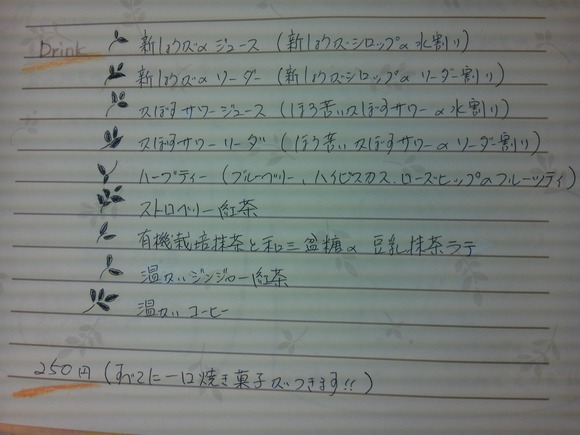 Drink 新しょうがのジュース (新しょうがシロップの水割り)
新しょうがのソーダー (新しょうがシロップのソーダー割り)
かぼすサワージュース (ほろ苦いかぼすサワーの水割り)
かぼすサワーソーダ (ほろ苦いかぼすサワーのソーダー割り)
ハーブティー (ブルーベリー、ハイビスカス、ローズヒップのフルーツティ)
ストロベリー紅茶
有機栽培抹茶と和三盆糖の豆乳抹茶ラテ
温かいジンジャー紅茶
温かいコーヒー
250円 (すべてに一口焼き菓子がつきます!!)